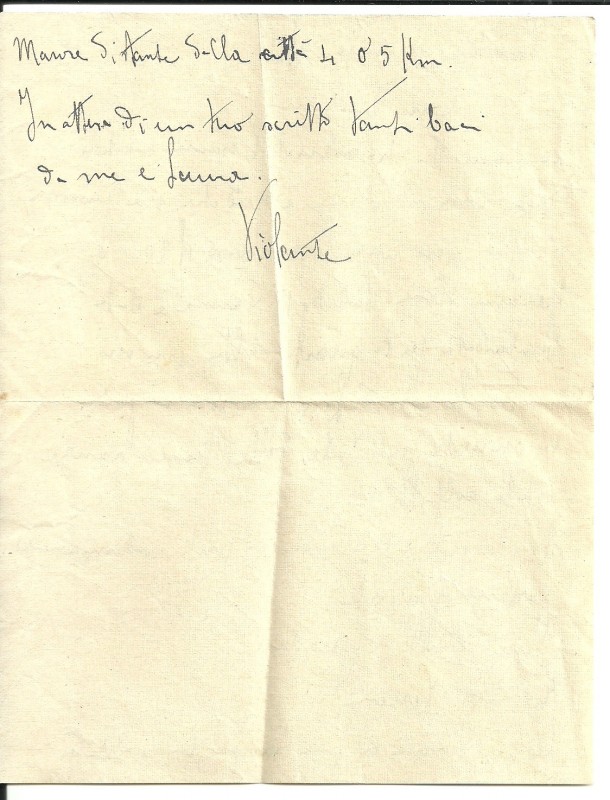 mare distante dalla città 4 o 5 Km.
In attesa di un tuo scritto tanti baci
da me e Laura.
Violante